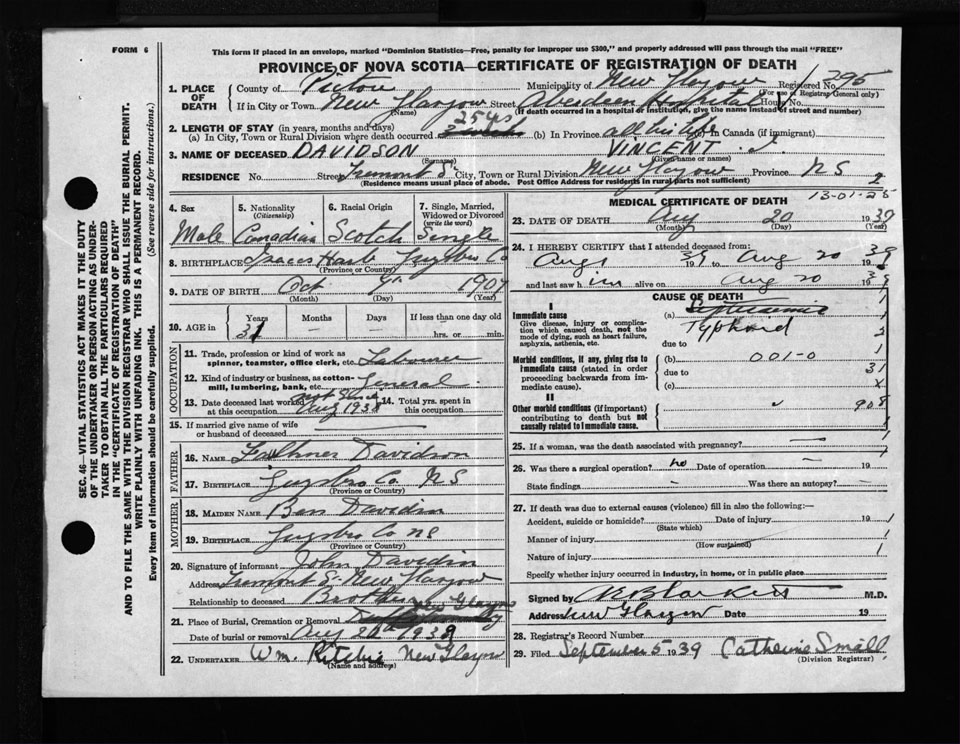 FORM 6
This form if placed in an envelope, marked "Dominion Statistics—Free, penalty for improper use $300," and properly addressed will pass through the mail "FREE"
PROVINCE OF NOVA SCOTIA—CERTIFICATE OF REGISTRATION OF DEATH
1. PLACE OF DEATH
County of Pictou Municipality of New Glasgow Registered No. 295
(For use of Registrar General only)
If in City or Town New Glasgow Street Aberdeen Hospital House
(Name) (If death occurred in a hospital or institution, give the name instead of street and number)
2. LENGTH OF STAY (in years, months and days)
(a) In City, Town or Rural Division where death occurred 25 yrs (b) In Province all his life In Canada (if immigrant)
3. NAME OF DECEASED DAVIDSON VINCENT J.
(Surname) (Given name or names)
RESIDENCE No. Street City, Town or Rural Division New Glasgow Province NS
(Residence means usual place of abode. Post Office Address for residents in rural parts not sufficient)
2
13-01-25
4. Sex 5. Nationality (Citizenship) 6. Racial Origin 7. Single, Married, Widowed or Divorced (write the word)
Male Canadian Scotch Single
8. BIRTHPLACE Guysbro Co
(Province or Country)
9. DATE OF BIRTH Oct 1907
(Month) (Day) (Year)
10. AGE in Years Months Days If less than one day old
31 — — hrs. or min.
OCCUPATION
11. Trade, profession or kind of work as spinner, teamster, office clerk, etc. Labourer
12. Kind of industry or business, as cotton-mill, lumbering, bank, etc. General
13. Date deceased last worked at this occupation not since Aug 1938 14. Total yrs. spent in this occupation
15. If married give name of wife or husband of deceased —
FATHER
16. Name Davidson
17. BIRTHPLACE Guysbro Co. NS
(Province or Country)
MOTHER
18. MAIDEN NAME Davidson
19. BIRTHPLACE Guysbro Co NS
(Province or Country)
20. Signature of informant John Davidson
Address New Glasgow
Relationship to deceased Brother
21. Place of Burial, Cremation or Removal New Glasgow
Date of burial or removal Aug 1939
22. UNDERTAKER Wm. Ritchie New Glasgow
(Name and address)
MEDICAL CERTIFICATE OF DEATH
23. DATE OF DEATH Aug 20 1939
(Month) (Day) (Year)
24. I HEREBY CERTIFY that I attended deceased from:
Aug 1 1939 to Aug 20 1939
and last saw him alive on Aug 20 1939
CAUSE OF DEATH
I
Immediate cause (a) Septicemia
Give disease, injury or complication which caused death, not the mode of dying, such as heart failure, asphyxia, asthenia, etc.
Typhoid
due to
Morbid conditions, if any, giving rise to immediate cause (stated in order proceeding backwards from immediate cause).
(b) 001-0
due to
(c)
II
Other morbid conditions (if important) contributing to death but not causally related to immediate cause.
31
x
908
25. If a woman, was the death associated with pregnancy? —
26. Was there a surgical operation? no Date of operation — 19
State findings — Was there an autopsy? —
27. If death was due to external causes (violence) fill in also the following:—
Accident, suicide or homicide? Date of injury 19
(State which)
Manner of injury
(How sustained)
Nature of injury
Specify whether injury occurred in industry, in home, or in public place
Signed by M.D.
Address New Glasgow Date 19
28. Registrar's Record Number
29. Filed September 5 1939 Catherine Small
(Division Registrar)
SEC. 46—VITAL STATISTICS ACT MAKES IT THE DUTY
OF THE UNDERTAKER OR PERSON ACTING AS UNDER-
TAKER TO OBTAIN ALL THE PARTICULARS REQUIRED
IN THE "CERTIFICATE OF REGISTRATION OF DEATH"
AND TO FILE THE SAME WITH THE DIVISION REGISTRAR WHO SHALL ISSUE THE BURIAL PERMIT.
WRITE PLAINLY WITH UNFADING INK. THIS IS A PERMANENT RECORD.
Every item of information should be carefully supplied. (See reverse side for instructions.)